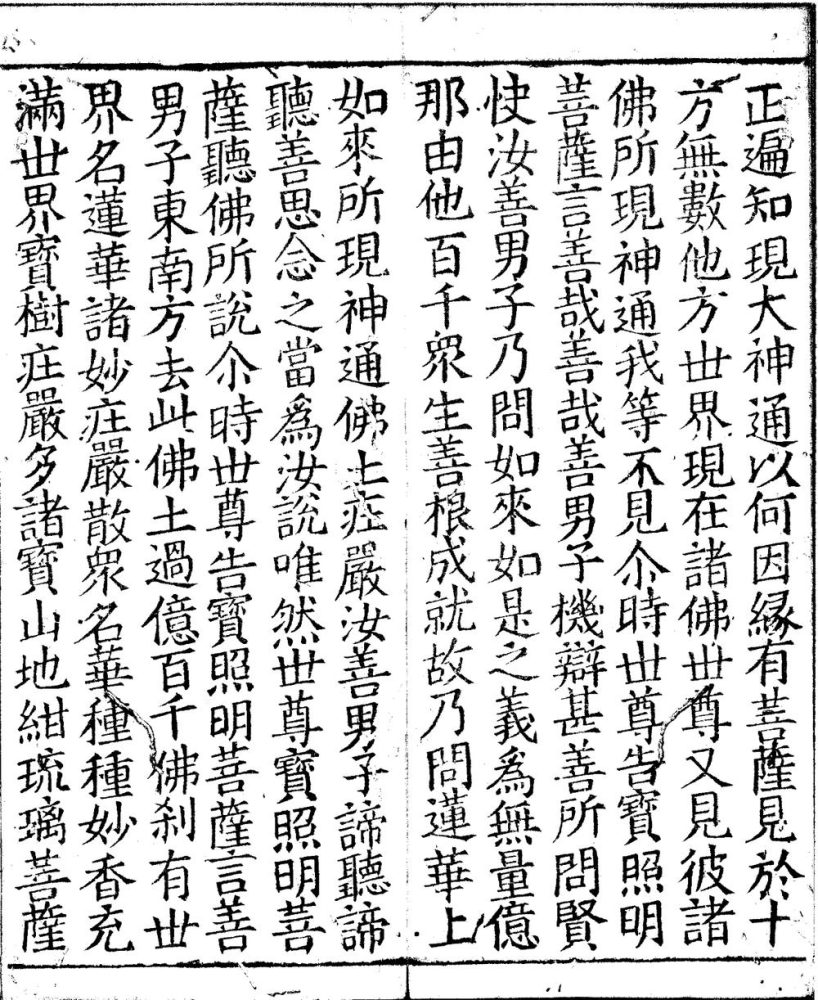 正遍知現大神通以何因緣有菩薩見於十
方無數他方世界現在諸佛世尊又見彼諸
佛所現神通我等不見尒時世尊告寶照明
菩薩言善哉善哉善男子機辯甚善所問賢
快汝善男子乃問如來如是之義爲無量億
那由他百千衆生善根成就故乃問蓮華上
如來所現神通佛土莊嚴汝善男子諦聽諦
聽善思念之當爲汝說唯然世尊寶照明菩
薩聽佛所說尒時世尊告寶照明菩薩言善
男子東南方去此佛土過億百千佛刹有世
界名蓮華諸妙庄嚴散衆名華種種妙香充
滿世界寶樹庄嚴多諸寶山地紺琉璃菩薩